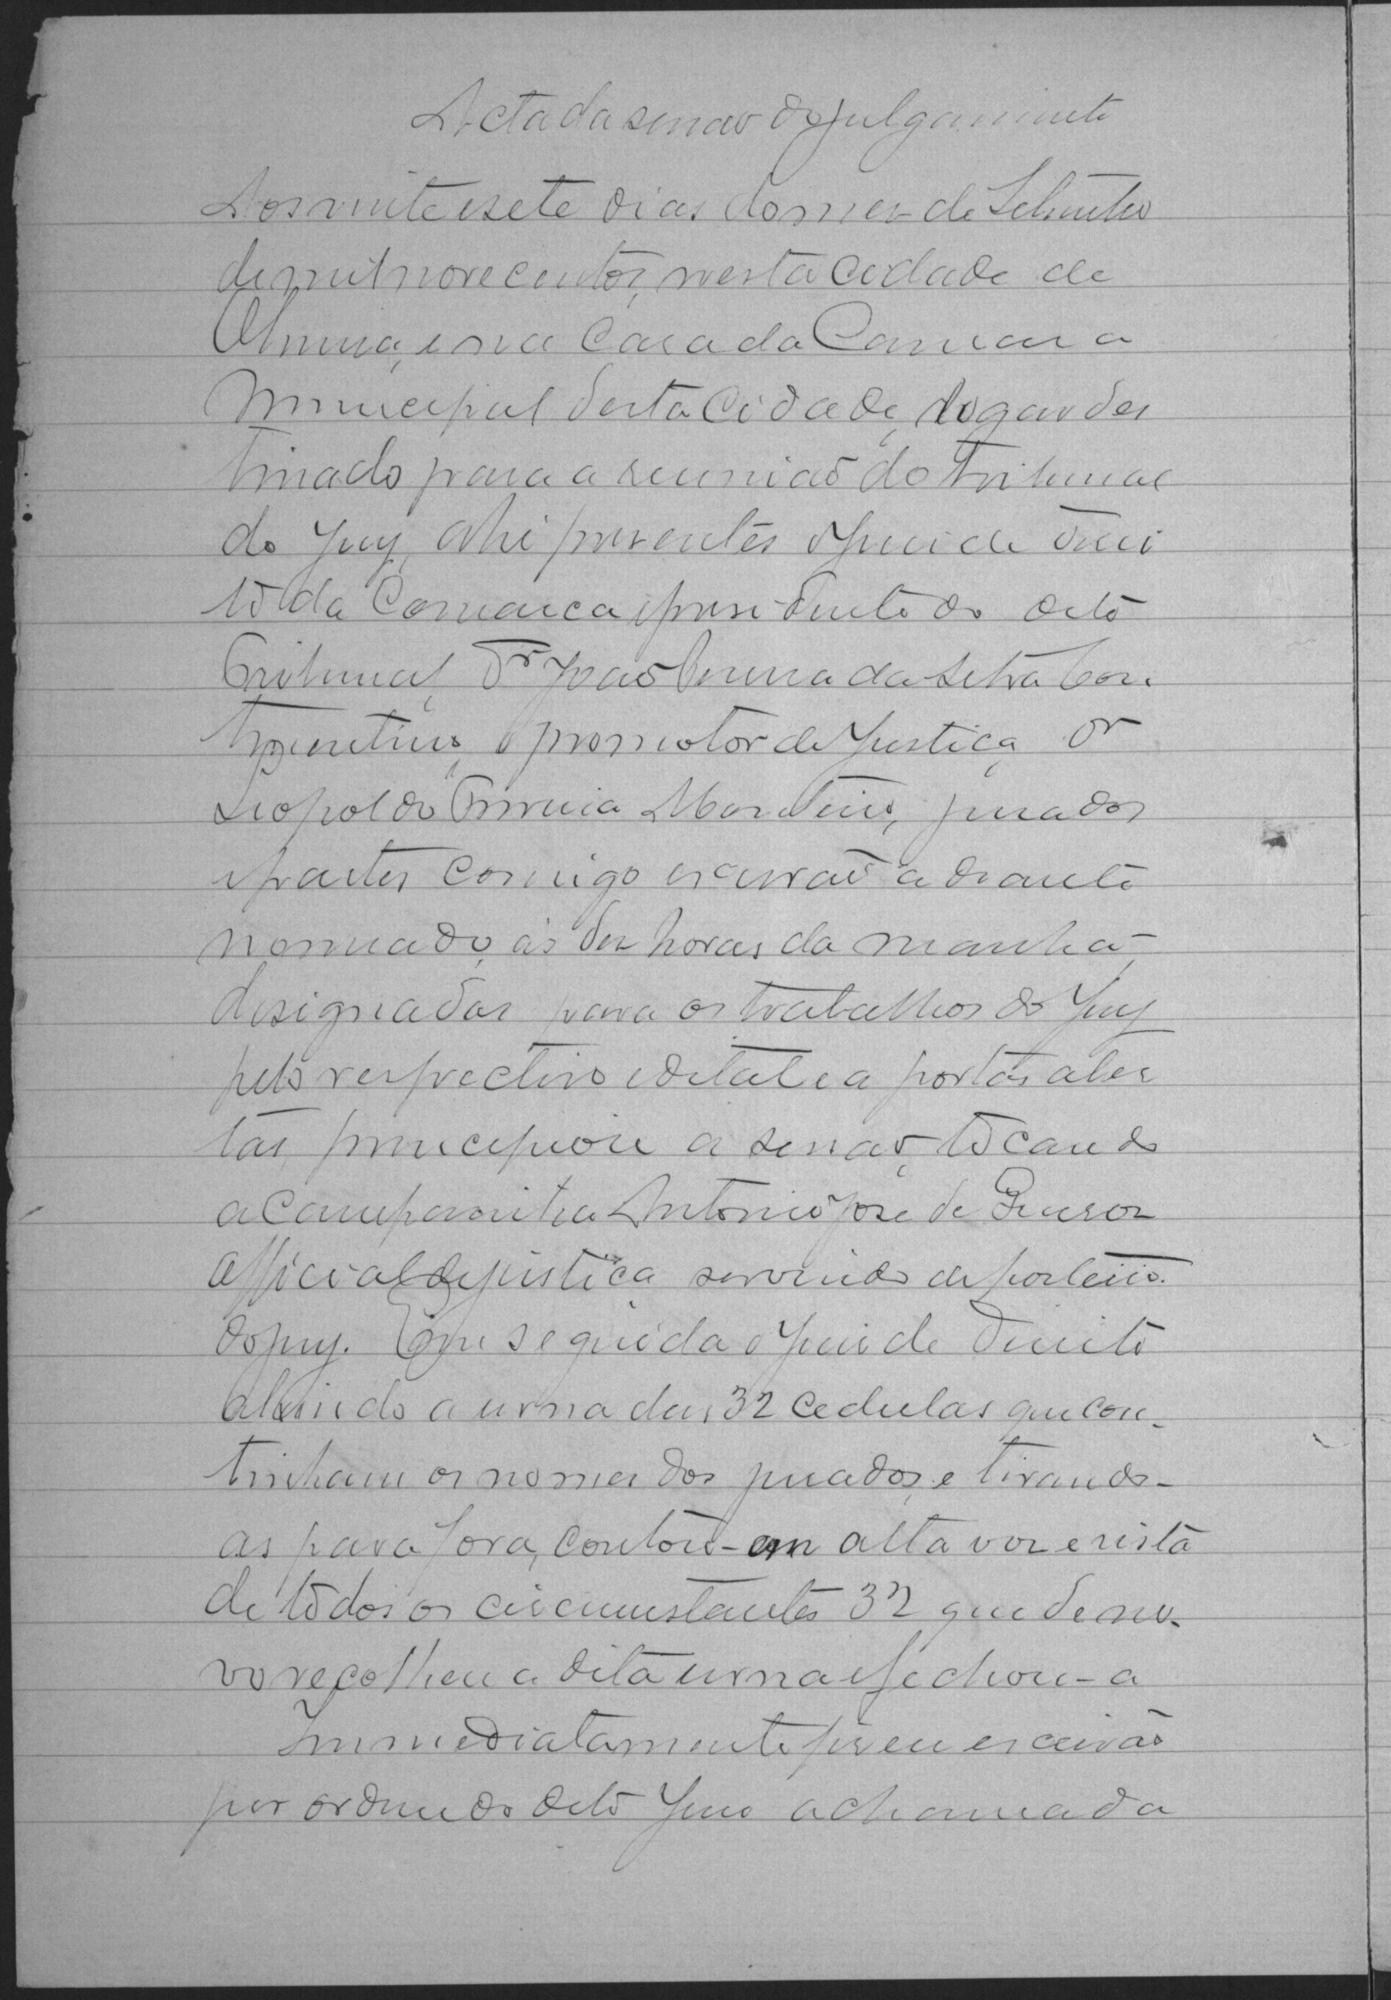 Acta da sessão de julgamento
Aos vinte e sete dias do mez de Setembro
de mil novecentos, nesta cidade de
e na Casa da Camara
Municipal desta Cidade, logar des
tinado para a reunião do Tribunal
do Jury, ahi presentes o Juiz de Direi
to da Comarca e presidente do dito
Tribunal, Dr João Pereira da Silva Con
o promotor de Justiça Dr
Leopoldo Monteiro, jurados
e partes comigo escrivão adeante
nomeado, ás dez horas da manhã,
designadas para os trabalhos do Jury
pelo respectivo edital e a portas aber
tas, principiou a sessão, tocando
a campainha Antonio José de
official de justiça servindo de porteiro
do jury. Em seguida o Juiz de Direito
abrindo a urna das 32 cedulas que con-
tinham os nomes dos jurados, e tirando-
as para fora, contou em alta voz e vista
de todos os circumstantes 32 que de no-
vo recolheu a dita urna e fechou-a
Immediatamente fiz eu escrivão
por ordem do dito Juiz a chamada